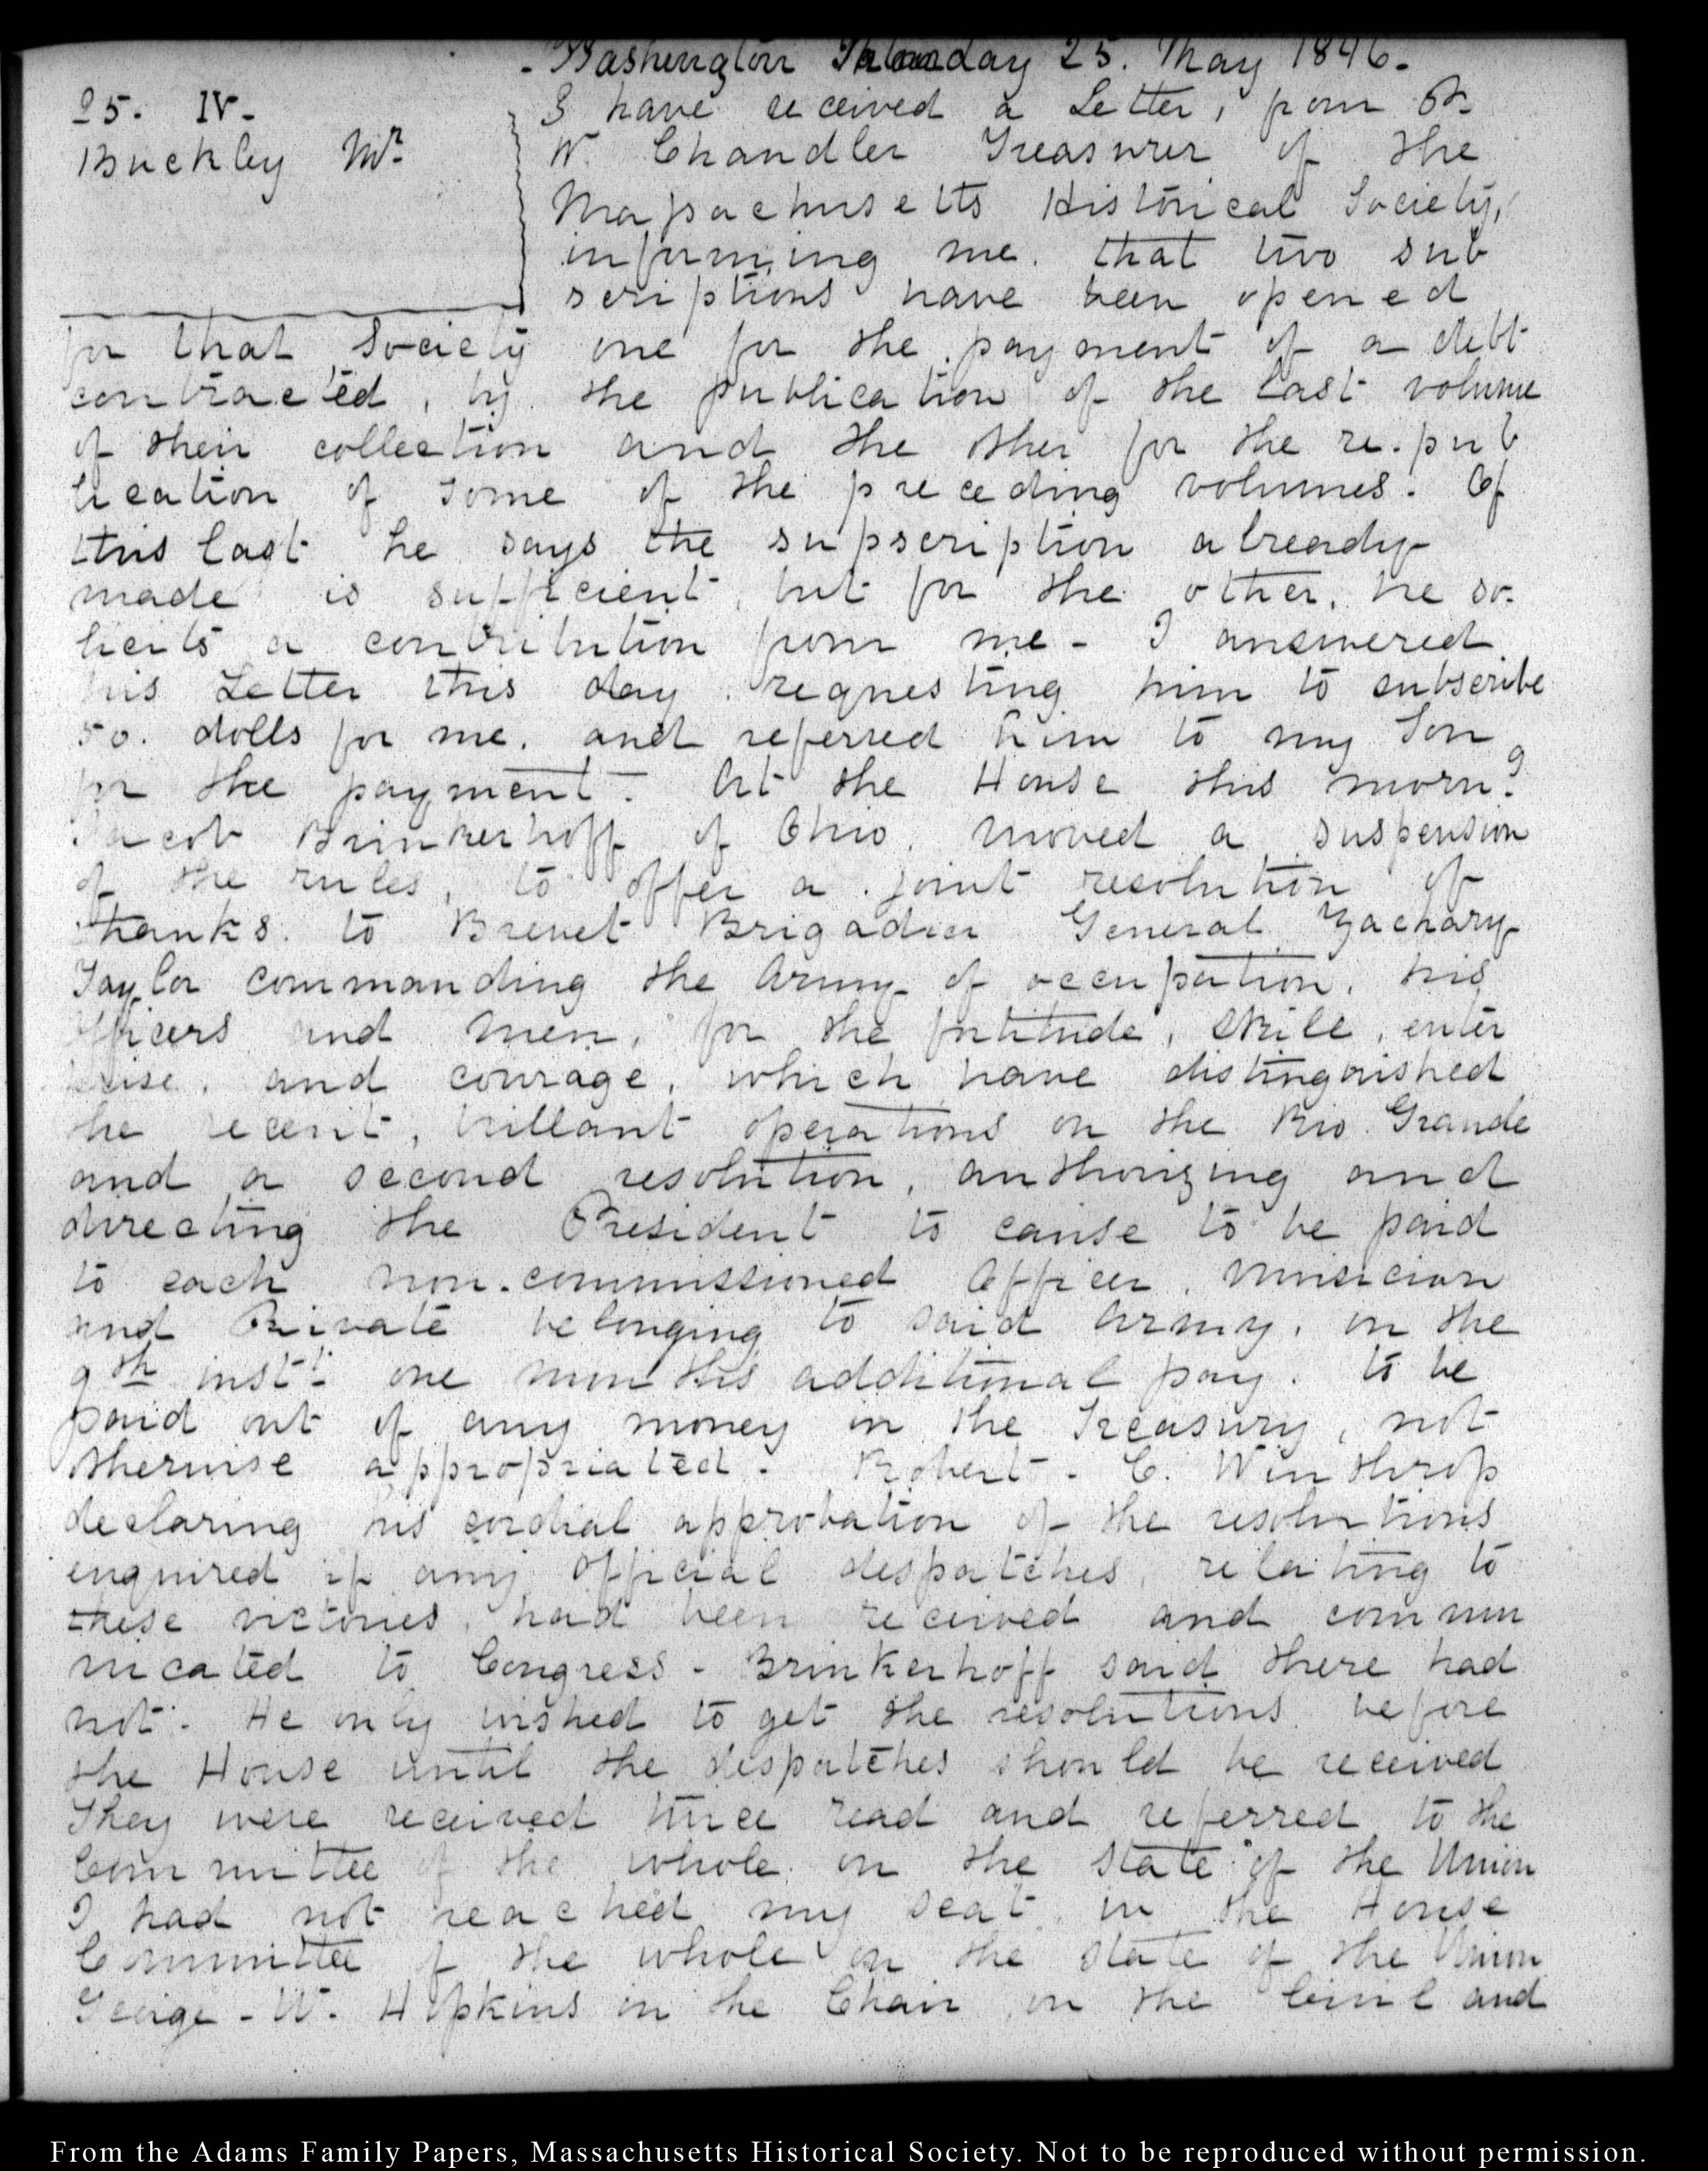 Washington Monday 25. May 1846.
25. IV.
Buckley Mr
I have received a Letter, from P.
W. Chandler Treasurer of the
Massachusetts Historical Society,
informing me. that two sub
scriptions have been opened
for that Society one for the payment of a debt
contracted, by the publication of the last volume
of their collection and the other for the re-pub
lication of some of the preceding volumes. Of
this last he says the supscription already
made is sufficient, but for the other, he so-
licits a contribution from me - I answered
his Letter this day requesting him to subscribe
50. dolls for me. and referred him to my Son
for the payment. At the House this morng
Jacob Brinkerhoff of Ohio. moved a suspension
of the rules, to offer a joint resolution of
thanks. to Brevet Brigadier General Zachary
Taylor commanding the Army of occupation. his
officers and men, for the fortitude, skill, enter
prise, and courage, which have distinguished
the recent, brillant operations on the Rio Grande
and a second resolution, authorizing and
directing the President to cause to be paid
to each non-commissioned Officer, musician
and Private belonging to said Army, on the
9th instt one months additional pay. to be
paid out of any money in the Treasury, not
otherwise appropriated. Robert. C. Winthrop
declaring his cordial approbation of the resolutions
enquired if any official despatches, relating to
these victories, had been received and commu
nicated to Congress - Brinkerhoff said there had
not. He only wished to get the resolutions before
the House until the despatches should be received
They were received twice read and referred to the
Committee of the whole on the state of the Union
I had not reached my seat in the House
Committee of the whole on the state of the Union
George-W. Hopkins in the Chair, on the Civil and
From the Adams Family Papers, Massachusetts Historical Society. Not to be reproduced without permission.